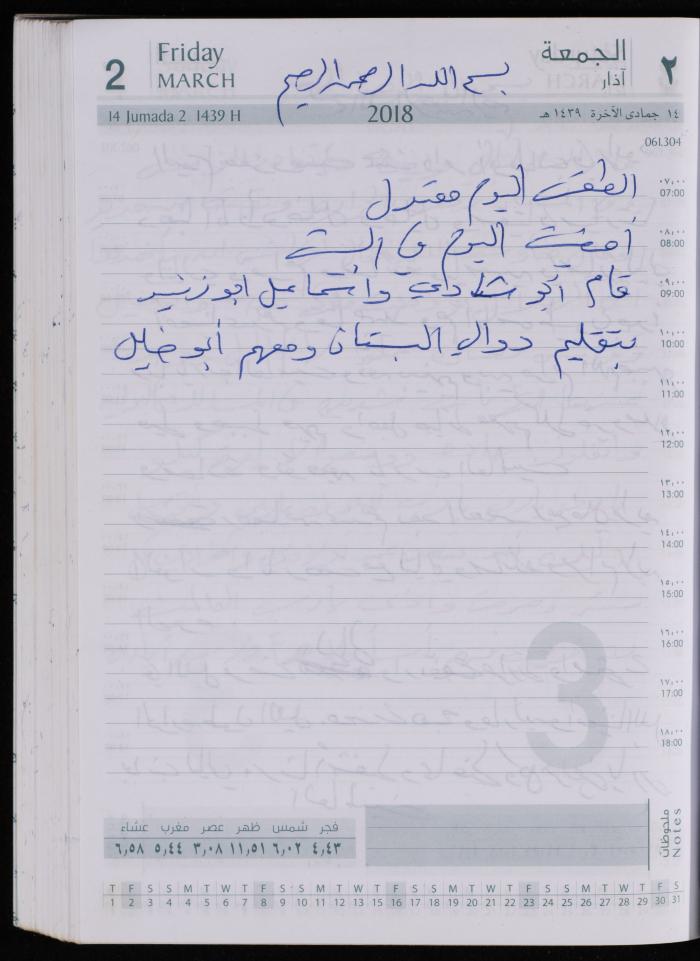 2 Friday MARCH
الجمعة ٢ آذار
بسم الله الرحمن الرحيم
14 Jumada 2 1439 H
2018
١٤ جمادى الآخرة ١٤٣٩ هـ
061.304
الطقس اليوم معتدل
أمضيت اليوم في البيت
قام أبو شادي واسماعيل ابو زنيد
بتقليم دوالي البستان ومعهم أبو خليل
٠٧,٠٠
07:00
٠٨,٠٠
08:00
٠٩,٠٠
09:00
١٠,٠٠
10:00
١١,٠٠
11:00
١٢,٠٠
12:00
١٣,٠٠
13:00
١٤,٠٠
14:00
١٥,٠٠
15:00
١٦,٠٠
16:00
١٧,٠٠
17:00
١٨,٠٠
18:00
3
فجر شمس ظهر عصر مغرب عشاء
٤,٤٣ ٦,٠٢ ١١,٥١ ٣,٠٨ ٥,٤٤ ٦,٥٨
ملحوظات
Notes
T F S S M T W T F S S M T W T F S S M T W T F S S M T W T F S
1 2 3 4 5 6 7 8 9 10 11 12 13 14 15 16 17 18 19 20 21 22 23 24 25 26 27 28 29 30 31